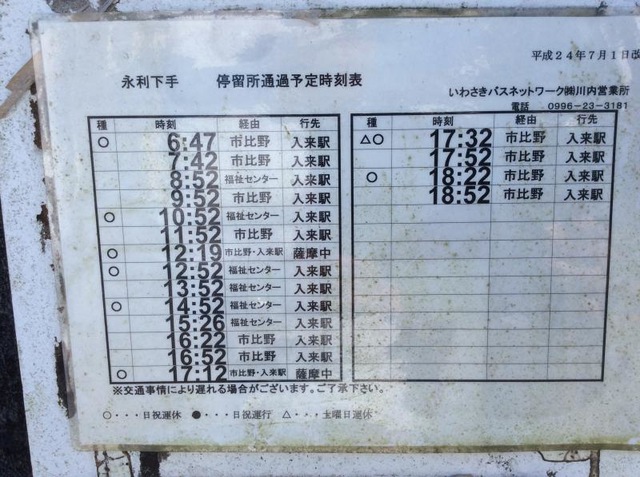 平成24年7月1日改
永利下手 停留所通過予定時刻表
いわさきバスネットワーク㈱川内営業所
電話 0996-23-3181
種 時刻 経由 行先
○ 6:47 市比野 入来駅
7:42 市比野 入来駅
8:52 福祉センター 入来駅
9:52 市比野 入来駅
○ 10:52 福祉センター 入来駅
11:52 市比野 入来駅
○ 12:19 市比野・入来駅 薩摩中
○ 12:52 福祉センター 入来駅
13:52 福祉センター 入来駅
○ 14:52 福祉センター 入来駅
15:26 福祉センター 入来駅
16:22 市比野 入来駅
16:52 市比野 入来駅
○ 17:12 市比野・入来駅 薩摩中
種 時刻 経由 行先
△○ 17:32 市比野 入来駅
17:52 市比野 入来駅
○ 18:22 市比野 入来駅
18:52 市比野 入来駅
※交通事情により遅れる場合がございます。ご了承下さい。
○・・・日祝運休 ●・・・日祝運行 △・・・土曜日運休